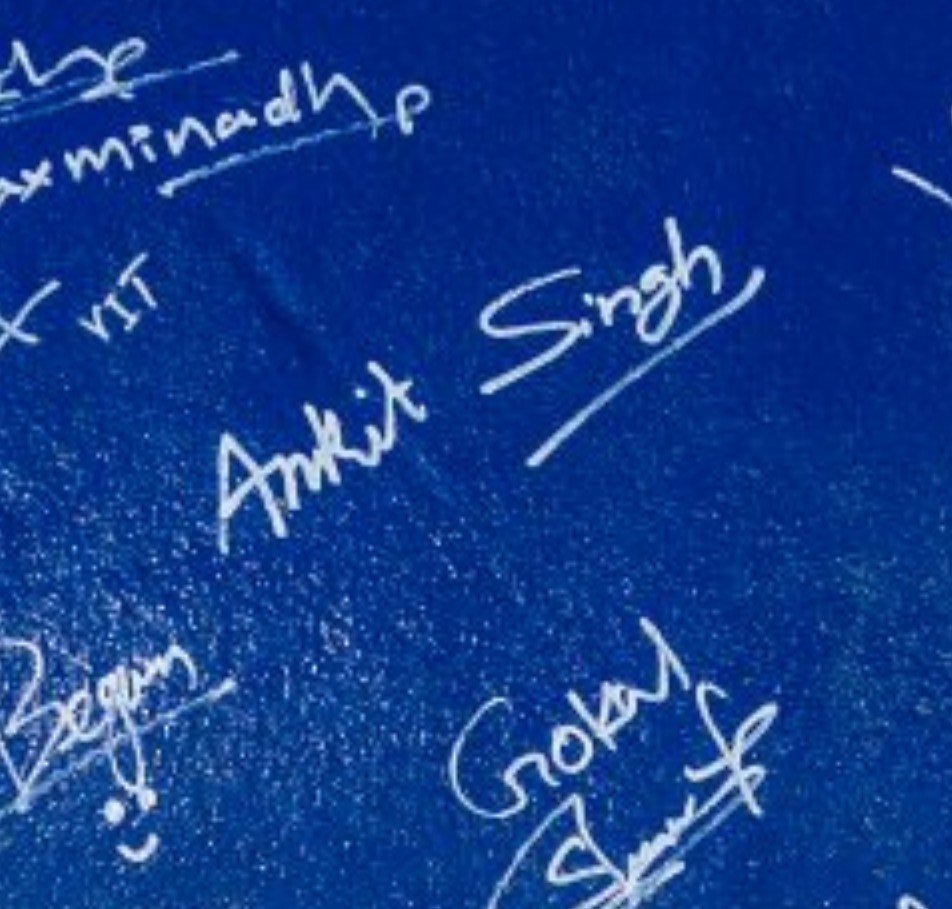 axminadh p
VIT
Ankit Singh
Begum
Gokul